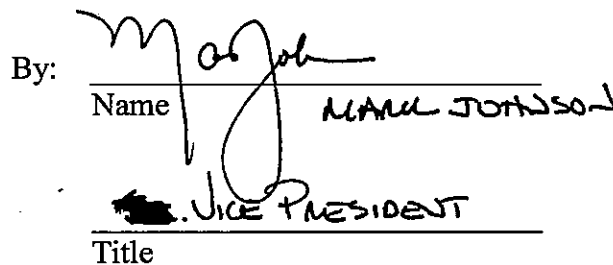 By:
Name MARK JOHNSON
VICE PRESIDENT
Title